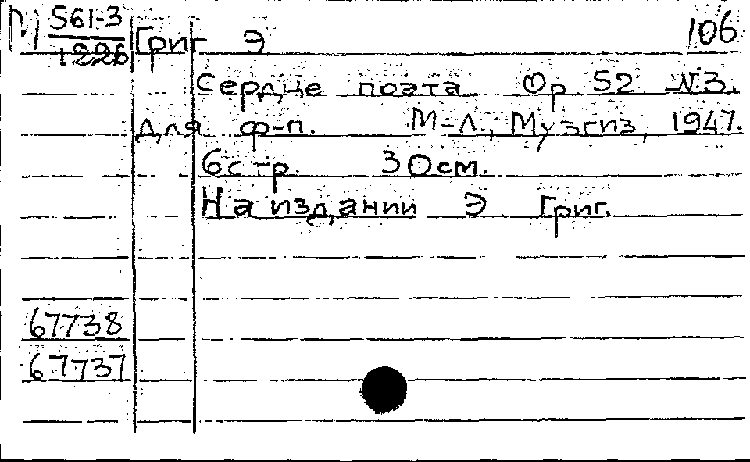 М 561-3 Григ Э 106
1226
Сердце поэта Op 52 №3.
для ф-п. М-Л., Музгиз, 1947.
6с-р 30см.
На издании Э Григ.
67738
67737